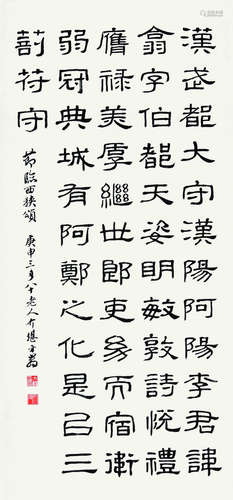 漢武都大守漢陽阿陽李君諱
翕字伯都天姿明敏敦詩悅禮
膺祿美厚繼世郎吏幼而宿衛
弱冠典城有阿鄭之化是㠯三
剖苻守
節臨西狹頌 庚申三月八十老人介堪